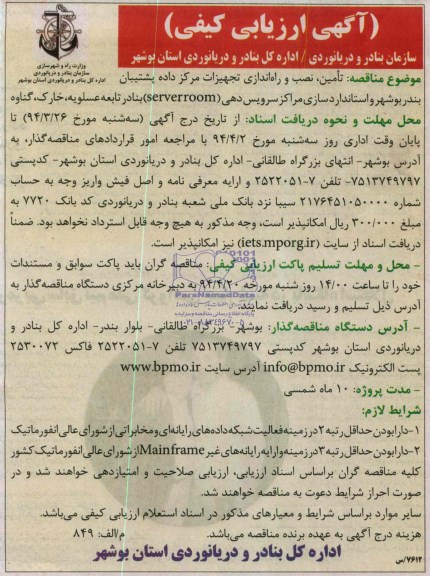 (آگهی ارزیابی کیفی)
سازمان بنادر و دریانوردی / اداره کل بنادر و دریانوردی استان بوشهر
وزارت راه و شهرسازی
سازمان بنادر و دریانوردی
اداره کل بنادر و دریانوردی استان بوشهر
موضوع مناقصه: تأمین، نصب و راه‌اندازی تجهیزات مرکز داده پشتیبان
بندر بوشهر و استانداردسازی مراکز سرویس دهی (server room) بنادر تابعه عسلویه، خارک، گناوه
محل مهلت و نحوه دریافت اسناد: از تاریخ درج آگهی (سه‌شنبه مورخ ۹۴/۳/۲۶) تا
پایان وقت اداری روز سه‌شنبه مورخ ۹۴/۴/۲ با مراجعه امور قراردادهای مناقصه‌گذار، به
آدرس بوشهر- انتهای بزرگراه طالقانی- اداره کل بنادر و دریانوردی استان بوشهر- کدپستی
۷۵۱۳۷۴۹۷۹۷- تلفن ۷-۲۵۲۲۰۵۱ و ارایه معرفی نامه و اصل فیش واریز وجه به حساب
شماره ۲۱۷۶۴۵۱۰۵۰۰۰۰ سیبا نزد بانک ملی شعبه بنادر و دریانوردی کد بانک ۷۷۲۰ به
مبلغ ۳۰۰/۰۰۰ ریال امکانپذیر است، وجه مذکور به هیچ وجه قابل استرداد نخواهد بود. ضمناً
دریافت اسناد از سایت (iets.mporg.ir) نیز امکانپذیر است.
- محل و مهلت تسلیم پاکت ارزیابی کیفی: مناقصه گران باید پاکت سوابق و مستندات
خود را تا ساعت ۱۴/۰۰ روز شنبه مورخه ۹۴/۴/۲۰ به دبیرخانه مرکزی دستگاه مناقصه‌گذار به
آدرس ذیل تسلیم و رسید دریافت نمایند.
- آدرس دستگاه مناقصه‌گذار: بوشهر- بزرگراه طالقانی- بلوار بندر- اداره کل بنادر و
دریانوردی استان بوشهر کدپستی ۷۵۱۳۷۴۹۷۹۷ تلفن ۷-۲۵۲۲۰۵۱ فاکس ۲۵۳۰۰۷۲
پست الکترونیک info@bpmo.ir آدرس سایت www.bpmo.ir
- مدت پروژه: ۱۰ ماه شمسی
شرایط لازم:
۱-دارا بودن حداقل رتبه ۲ در زمینه فعالیت شبکه داده‌های رایانه‌ای و مخابراتی از شورای عالی انفورماتیک
۲-دارا بودن حداقل رتبه ۲ در زمینه و ارایه رایانه‌های غیر Mainframe از شورای عالی انفورماتیک کشور
کلیه مناقصه گران براساس اسناد ارزیابی، ارزیابی صلاحیت و امتیازدهی خواهند شد و در
صورت احراز شرایط دعوت به مناقصه خواهند شد.
سایر موارد براساس شرایط و معیارهای مذکور در اسناد استعلام ارزیابی کیفی می‌باشد.
هزینه درج آگهی به عهده برنده مناقصه می‌باشد.
م/الف: ۸۴۹
اداره کل بنادر و دریانوردی استان بوشهر
۷۶۱۲/س
ParsNamadData